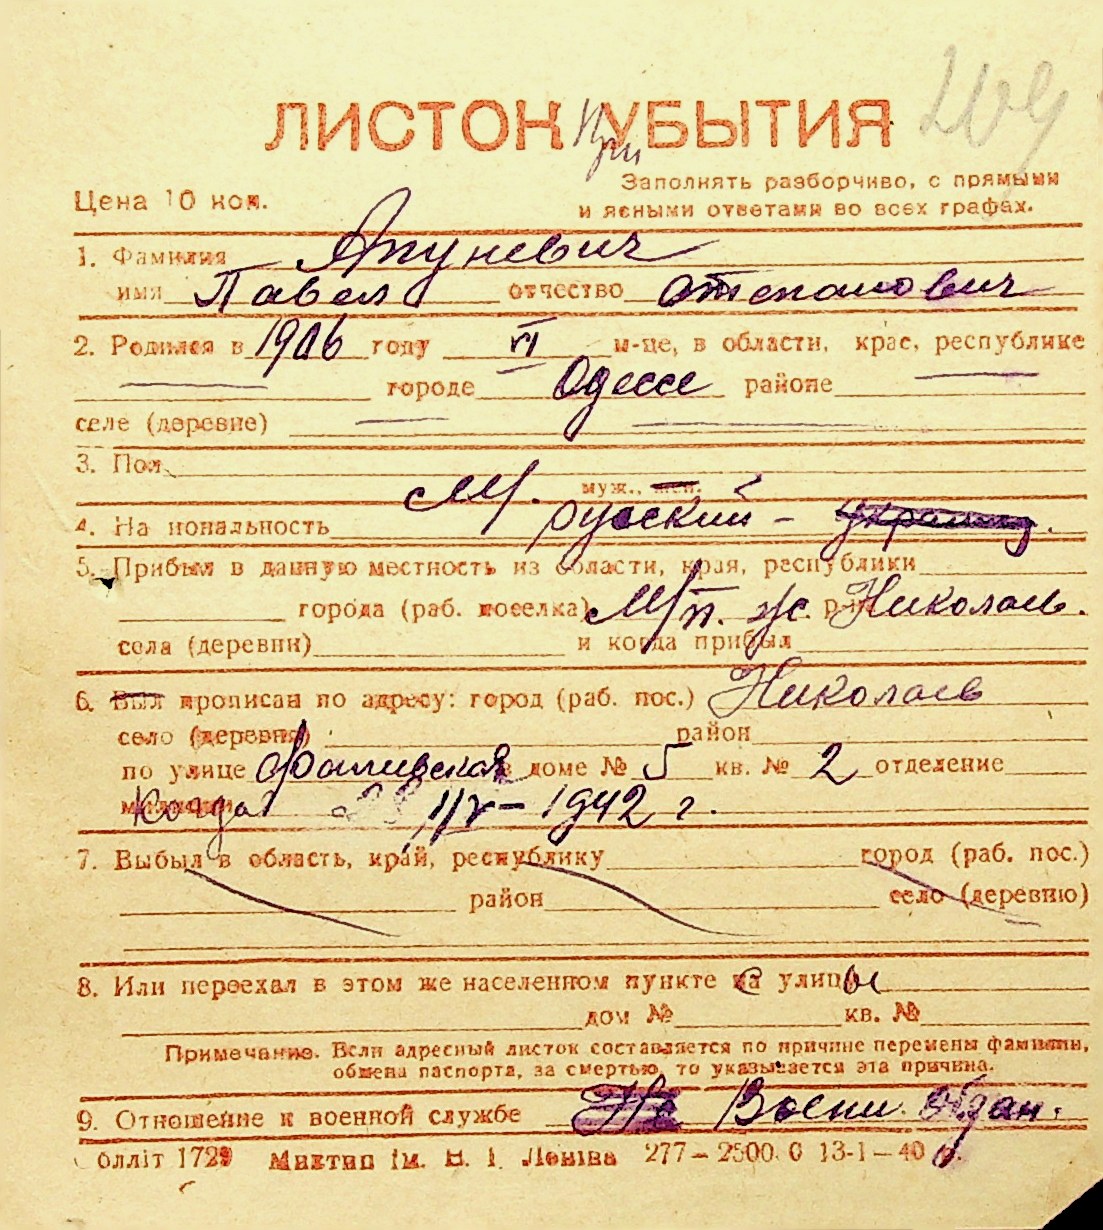 209
ЛИСТОК УБЫТИЯ
При
Заполнять разборчиво, с прямыми
Цена 10 коп.
и ясными ответами во всех графах.
1. Фамилия Япуневич
имя Павел отчество Степанович
2. Родился в 1906 году VI м-це, в области, крае, республике
городе Одессе районе
селе (деревне)
3. Пол М. муж., жен.
4. Национальность русский -
5. Прибыл в данную местность из области, края, республики
города (раб. поселка) М/п. ж. р-на Николаев.
села (деревни) и когда прибыл
6. Был прописан по адресу: город (раб. пос.) Николаев
село (деревня) район
по улице в доме № 5 кв. № 2 отделение
милиции Когда IV - 1942 г.
7. Выбыл в область, край, республику город (раб. пос.)
район село (деревню)
8. Или переехал в этом же населенном пункте с улицы
дом № кв. №
Примечание. Если адресный листок составляется по причине перемены фамилии,
обмена паспорта, за смертью, то указывается эта причина.
9. Отношение к военной службе Не Воен. обязан.
Облліт 1729 Миктип ім. В. І. Леніна 277-2500 0 13-1-40 р.